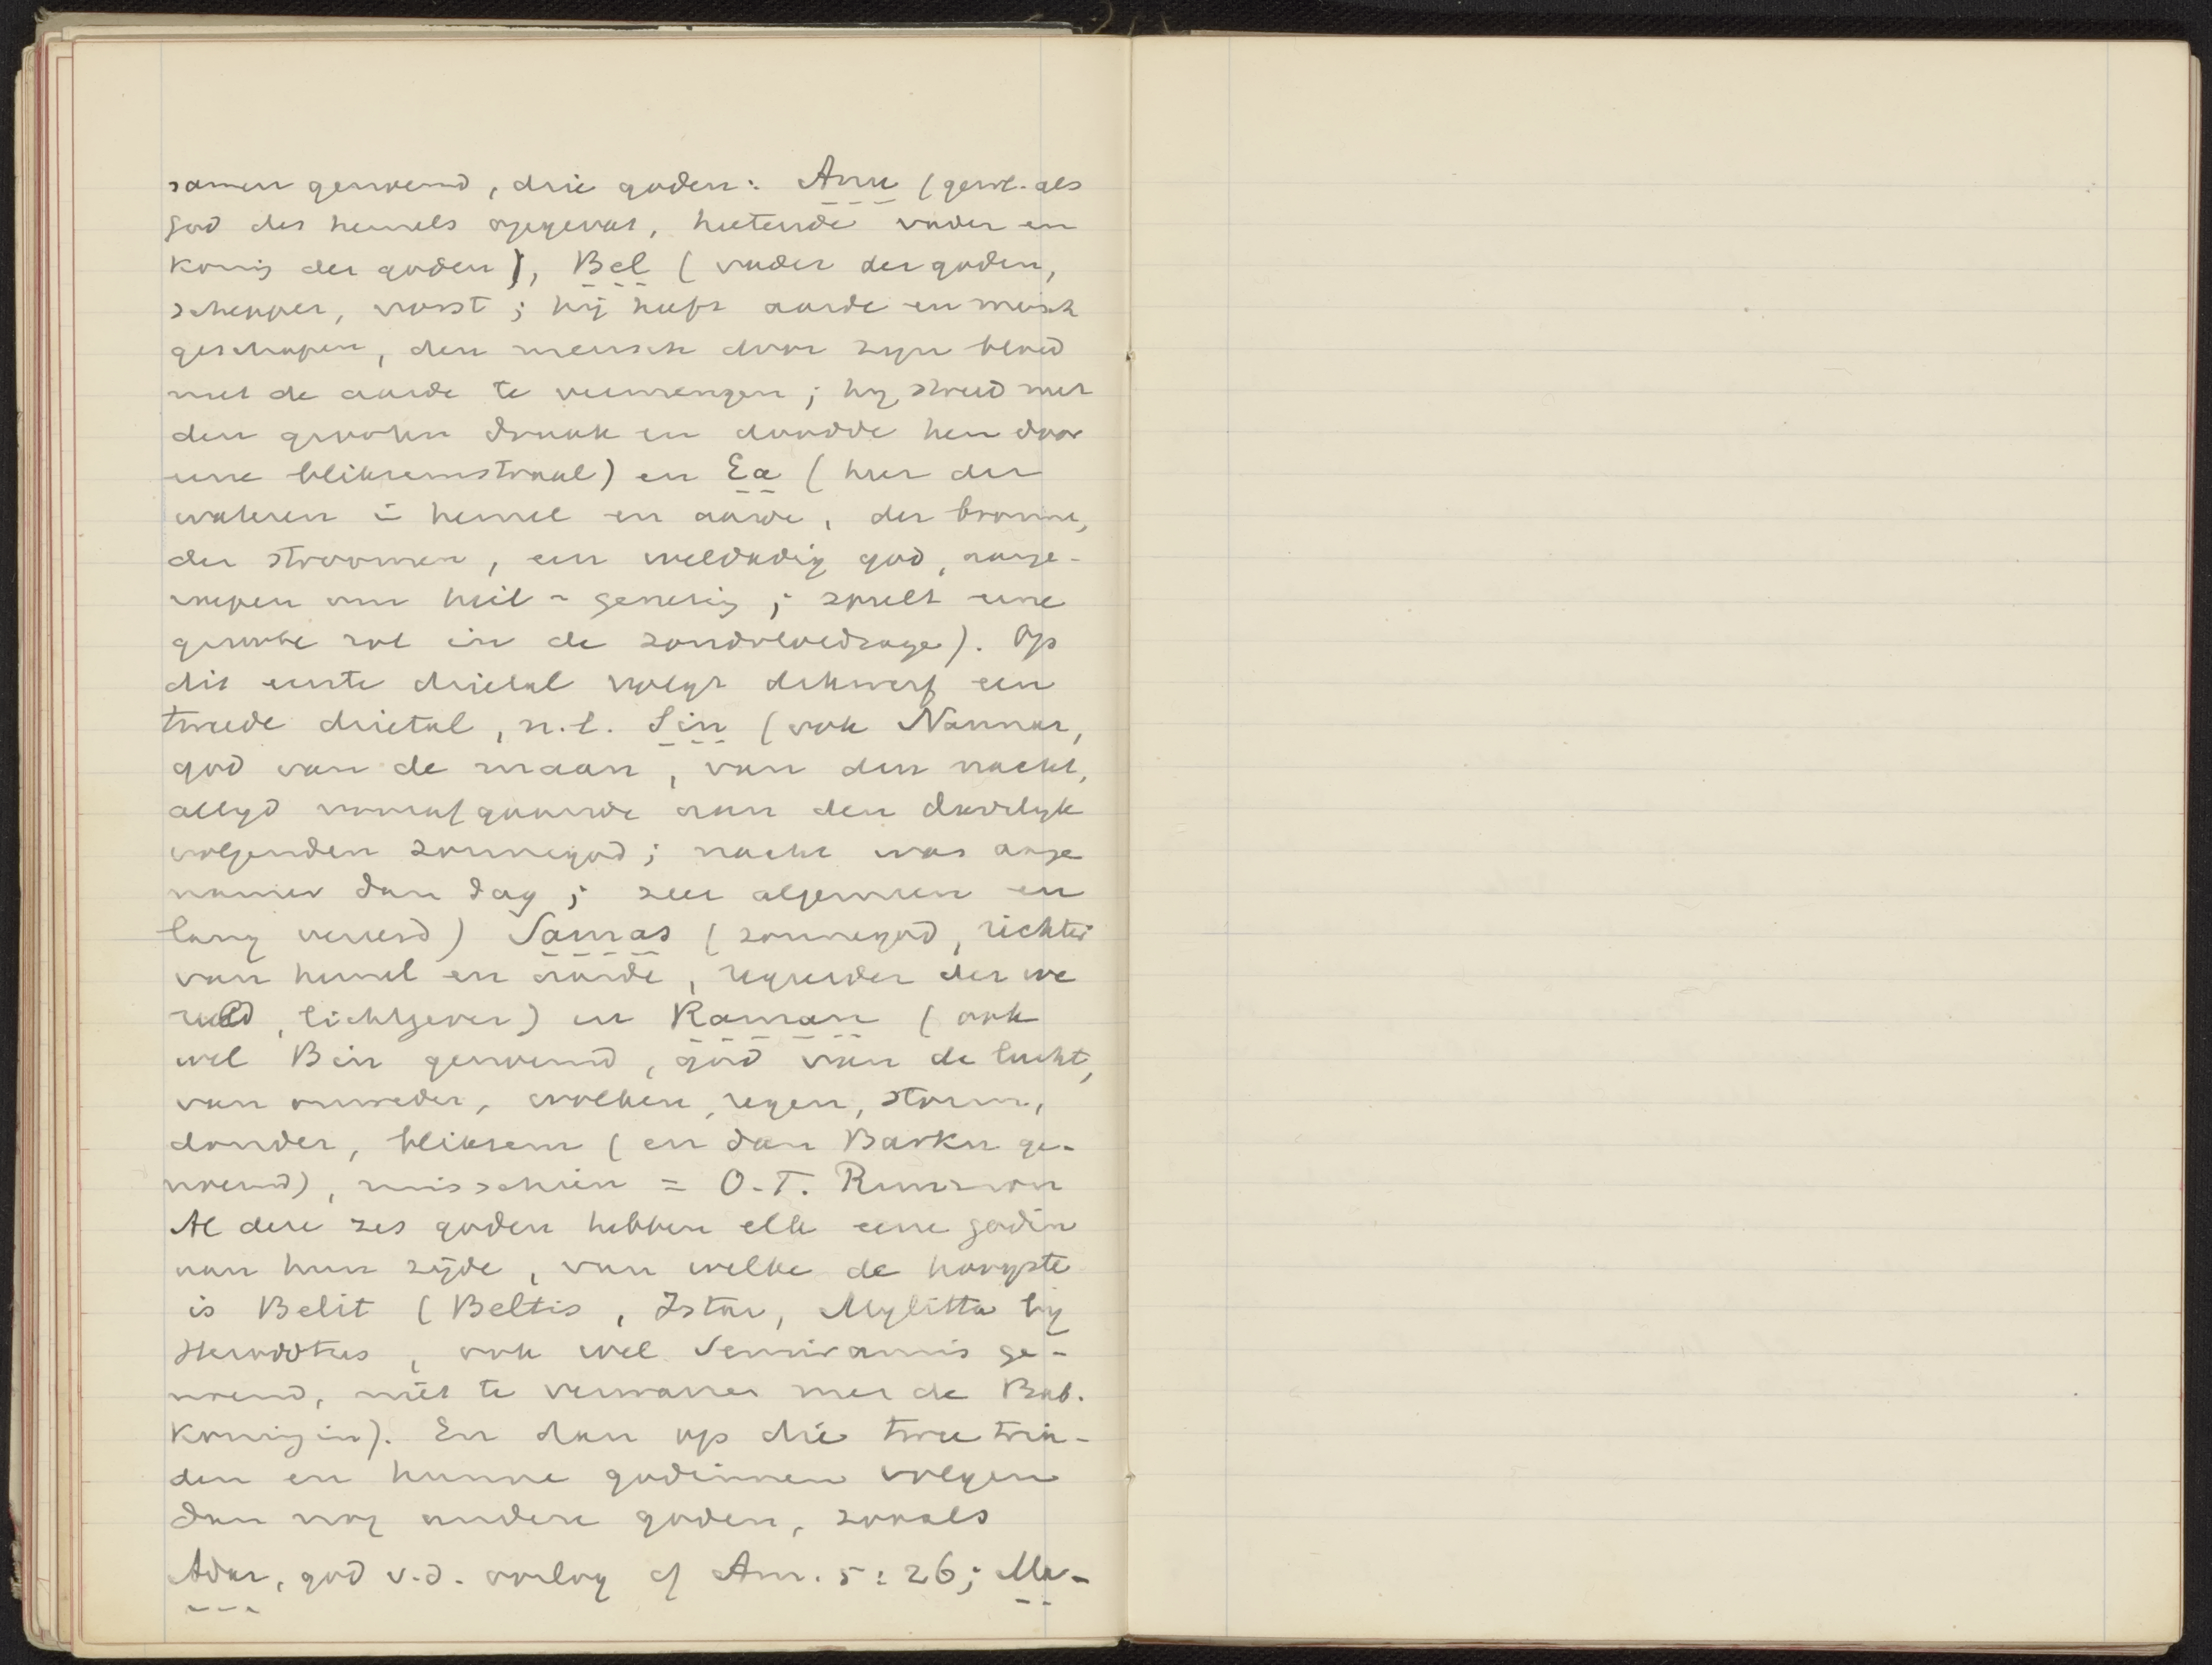 samen genoemd, drie goden: Anu (gew. als
god des hemels opgevat, heetende vader en
koning der goden), Bel (vader der goden,
schepper, vorst; hij heeft aarde en mensch
geschapen, den mensch door zijn bloed
met de aarde te vermengen; hij streed met
den grooten draak en doodde hen door
eene bliksemstraal) en Ea (heer der
wateren in hemel en aarde, der bronnen,
der stroomen, een weldadig god, aange-
roepen om heil - genezing; speelt eene
groote rol in de zondvloedsage). Op
dit eerste drietal volgt dikwerf een
tweede drietal, n.l. Sin (ook Nannar,
god van de maan, van den nacht,
altijd voorafgaande aan den dadelijk
volgenden zonnegod; nacht was ange
namer dan dag; zeer algemeen en
lang vereerd) Samas (zonnegod, richter
van hemel en aarde, regeerder der we
reld, lichtgever) en Raman (ook
wel Bin genoemd, god van de lucht,
van onweder, wolken, regen, storm,
donder, bliksem (en dan Barku ge-
noemd), misschien = O.T. Rimmon
Al deze zes goden hebben elk eene godin
aan hun zijde, van welke de hoogste
is Belit (Beltis, Istar, Mylitta bij
Herodotus, ook wel Semiramis ge-
noemd, niet te verwarren met de Bab.
koningin). En dan op die twee triä-
den en hunne godinnen volgen
dan nog andere goden, zooals
Adar, god v.d. oorlog cf Am. 5:26; Ma-